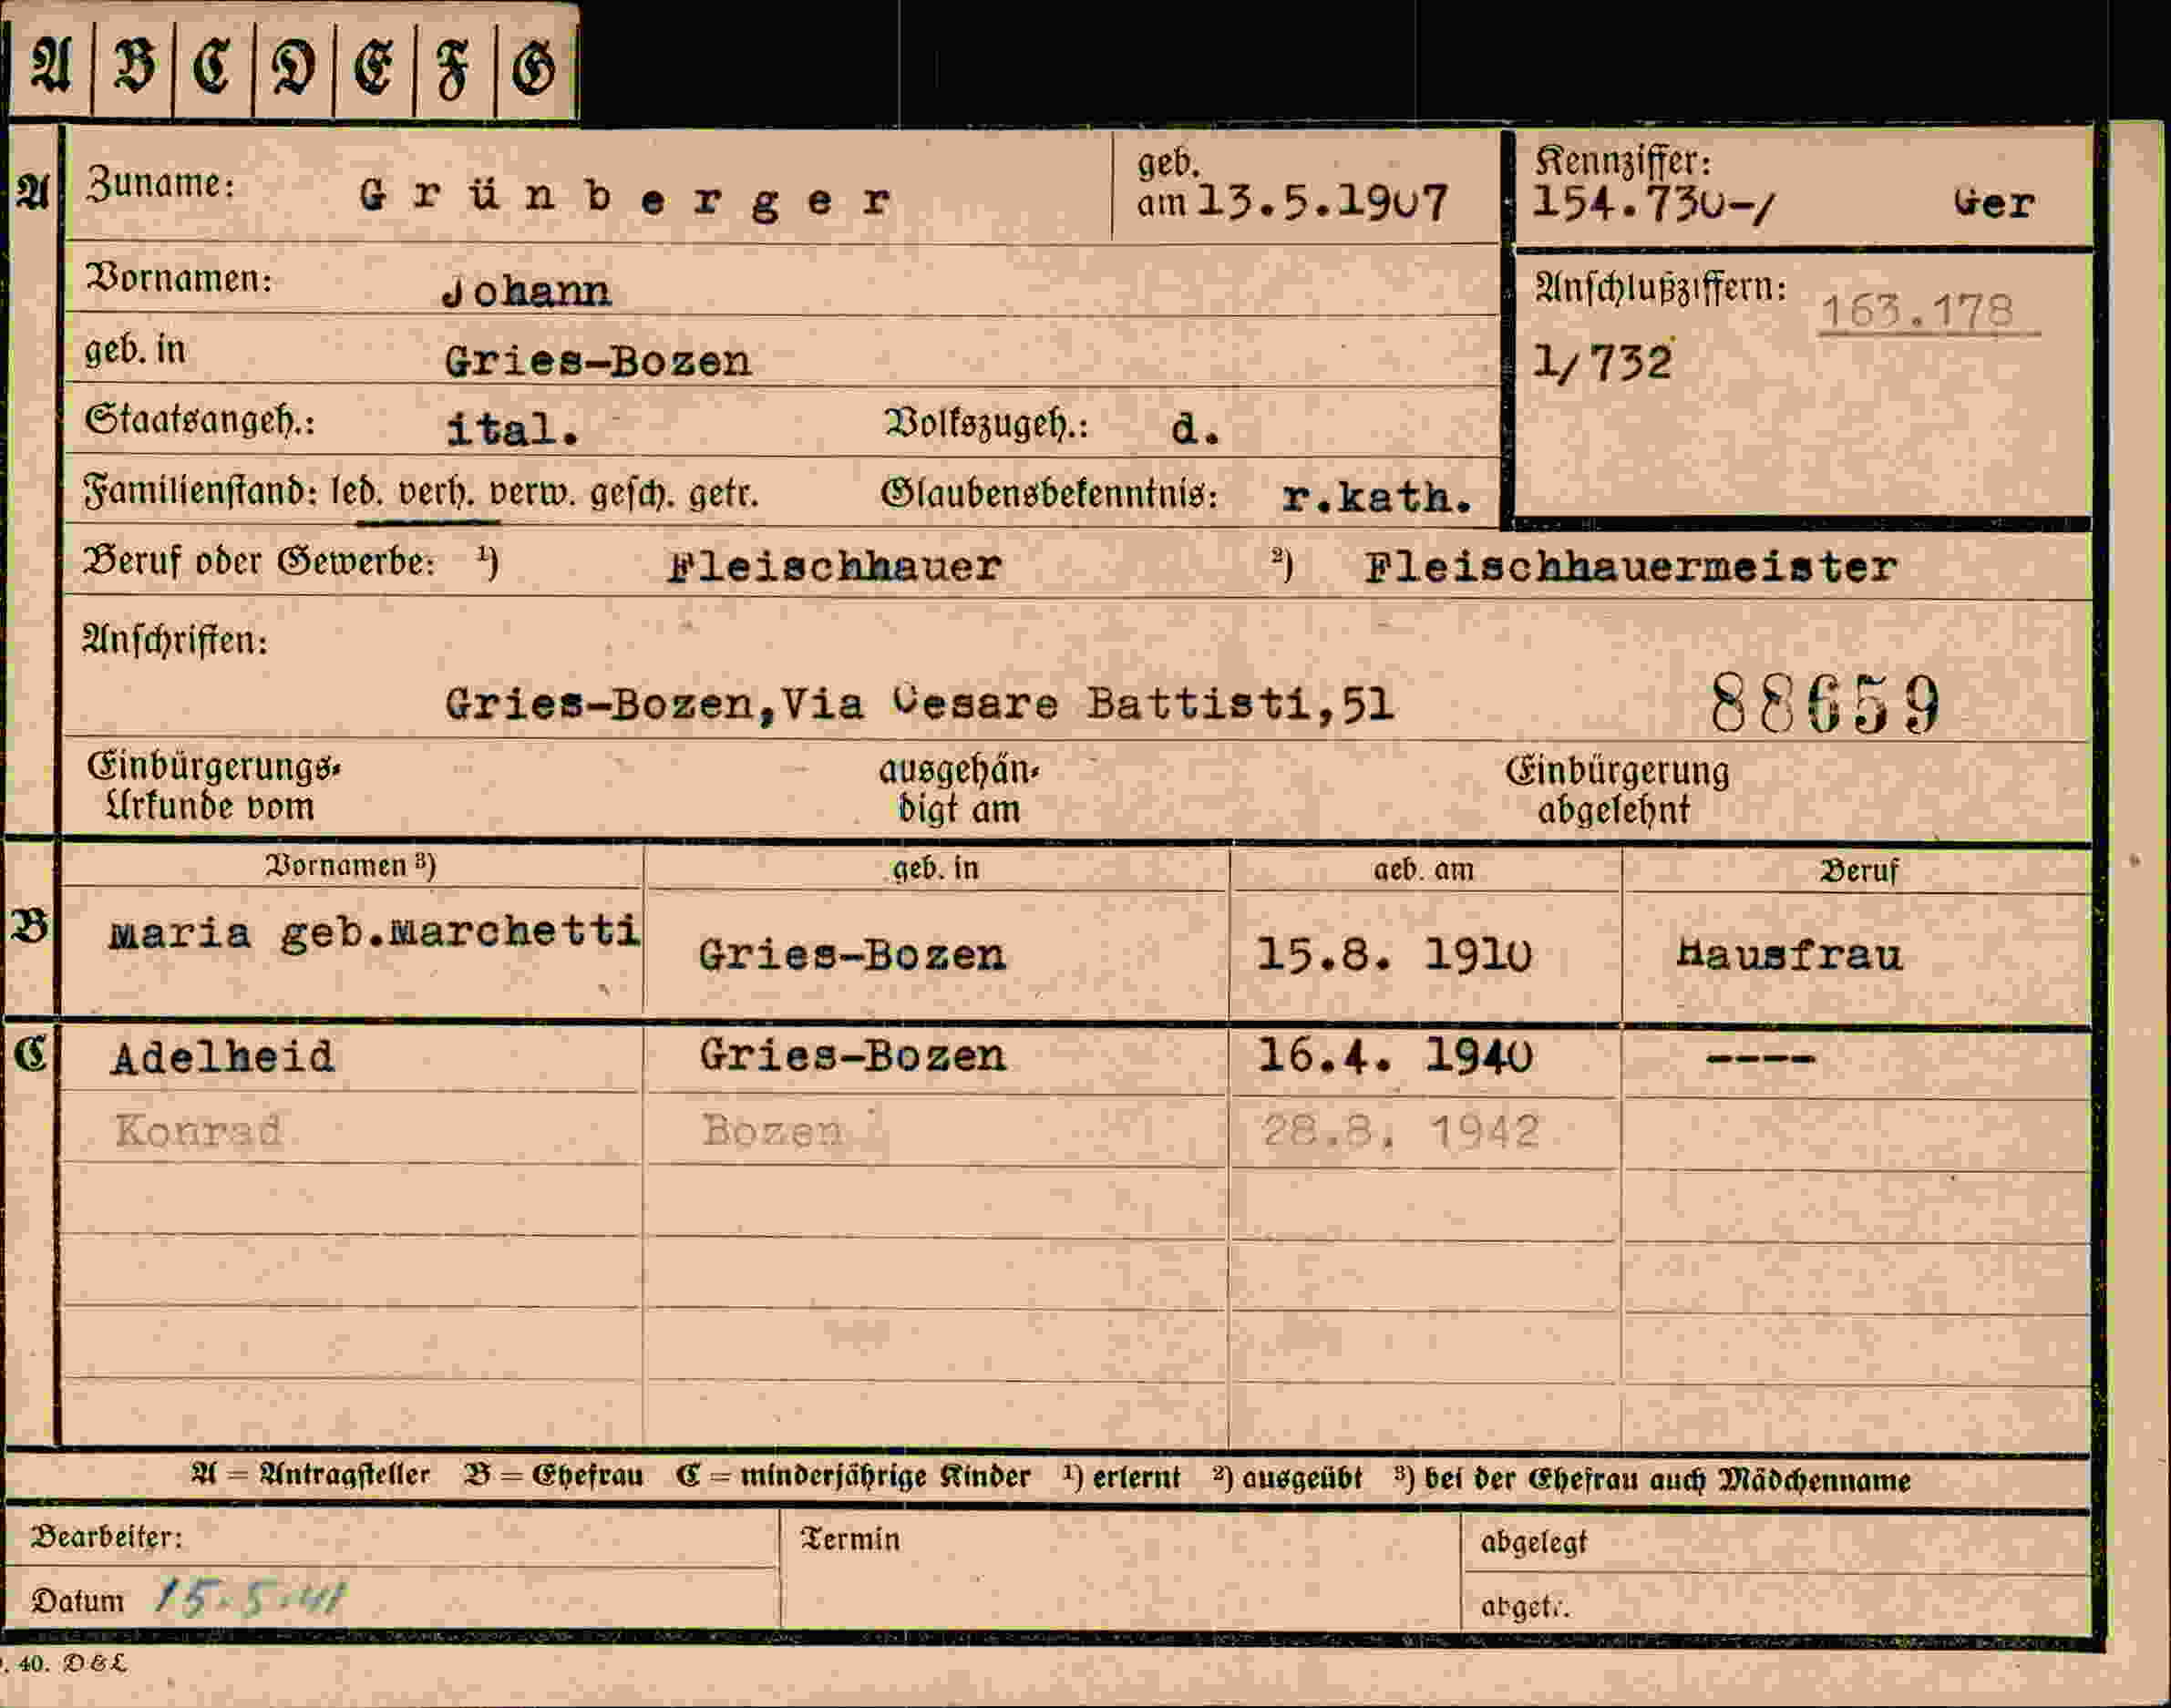 A B C D E F G
A Zuname: Grünberger geb. am 13.5.1907 Kennziffer: 154.730-/ Ger
Vornamen: Johann Anschlußziffern: 163.178
geb. in Gries-Bozen 1/732
Staatsangeh.: ital. Volkszugeh.: d.
Familienstand: led. verh. verw. gesch. getr. Glaubensbekenntnis: r.kath.
Beruf oder Gewerbe: ¹) Fleischhauer ²) Fleischhauermeister
Anschriften:
Gries-Bozen,Via Cesare Battisti,51 88659
Einbürgerungs- ausgehän- Einbürgerung
Urkunde vom digt am abgelehnt
Vornamen ³) geb. in geb. am Beruf
B Maria geb.Marchetti Gries-Bozen 15.8. 1910 Hausfrau
C Adelheid Gries-Bozen 16.4. 1940 ----
Konrad Bozen 28.8. 1942
A = Antragsteller B = Ehefrau C = minderjährige Kinder ¹) erlernt ²) ausgeübt ³) bei der Ehefrau auch Mädchenname
Bearbeiter: Termin abgelegt
Datum 15.5.41 abgetr.
. 40. D&L